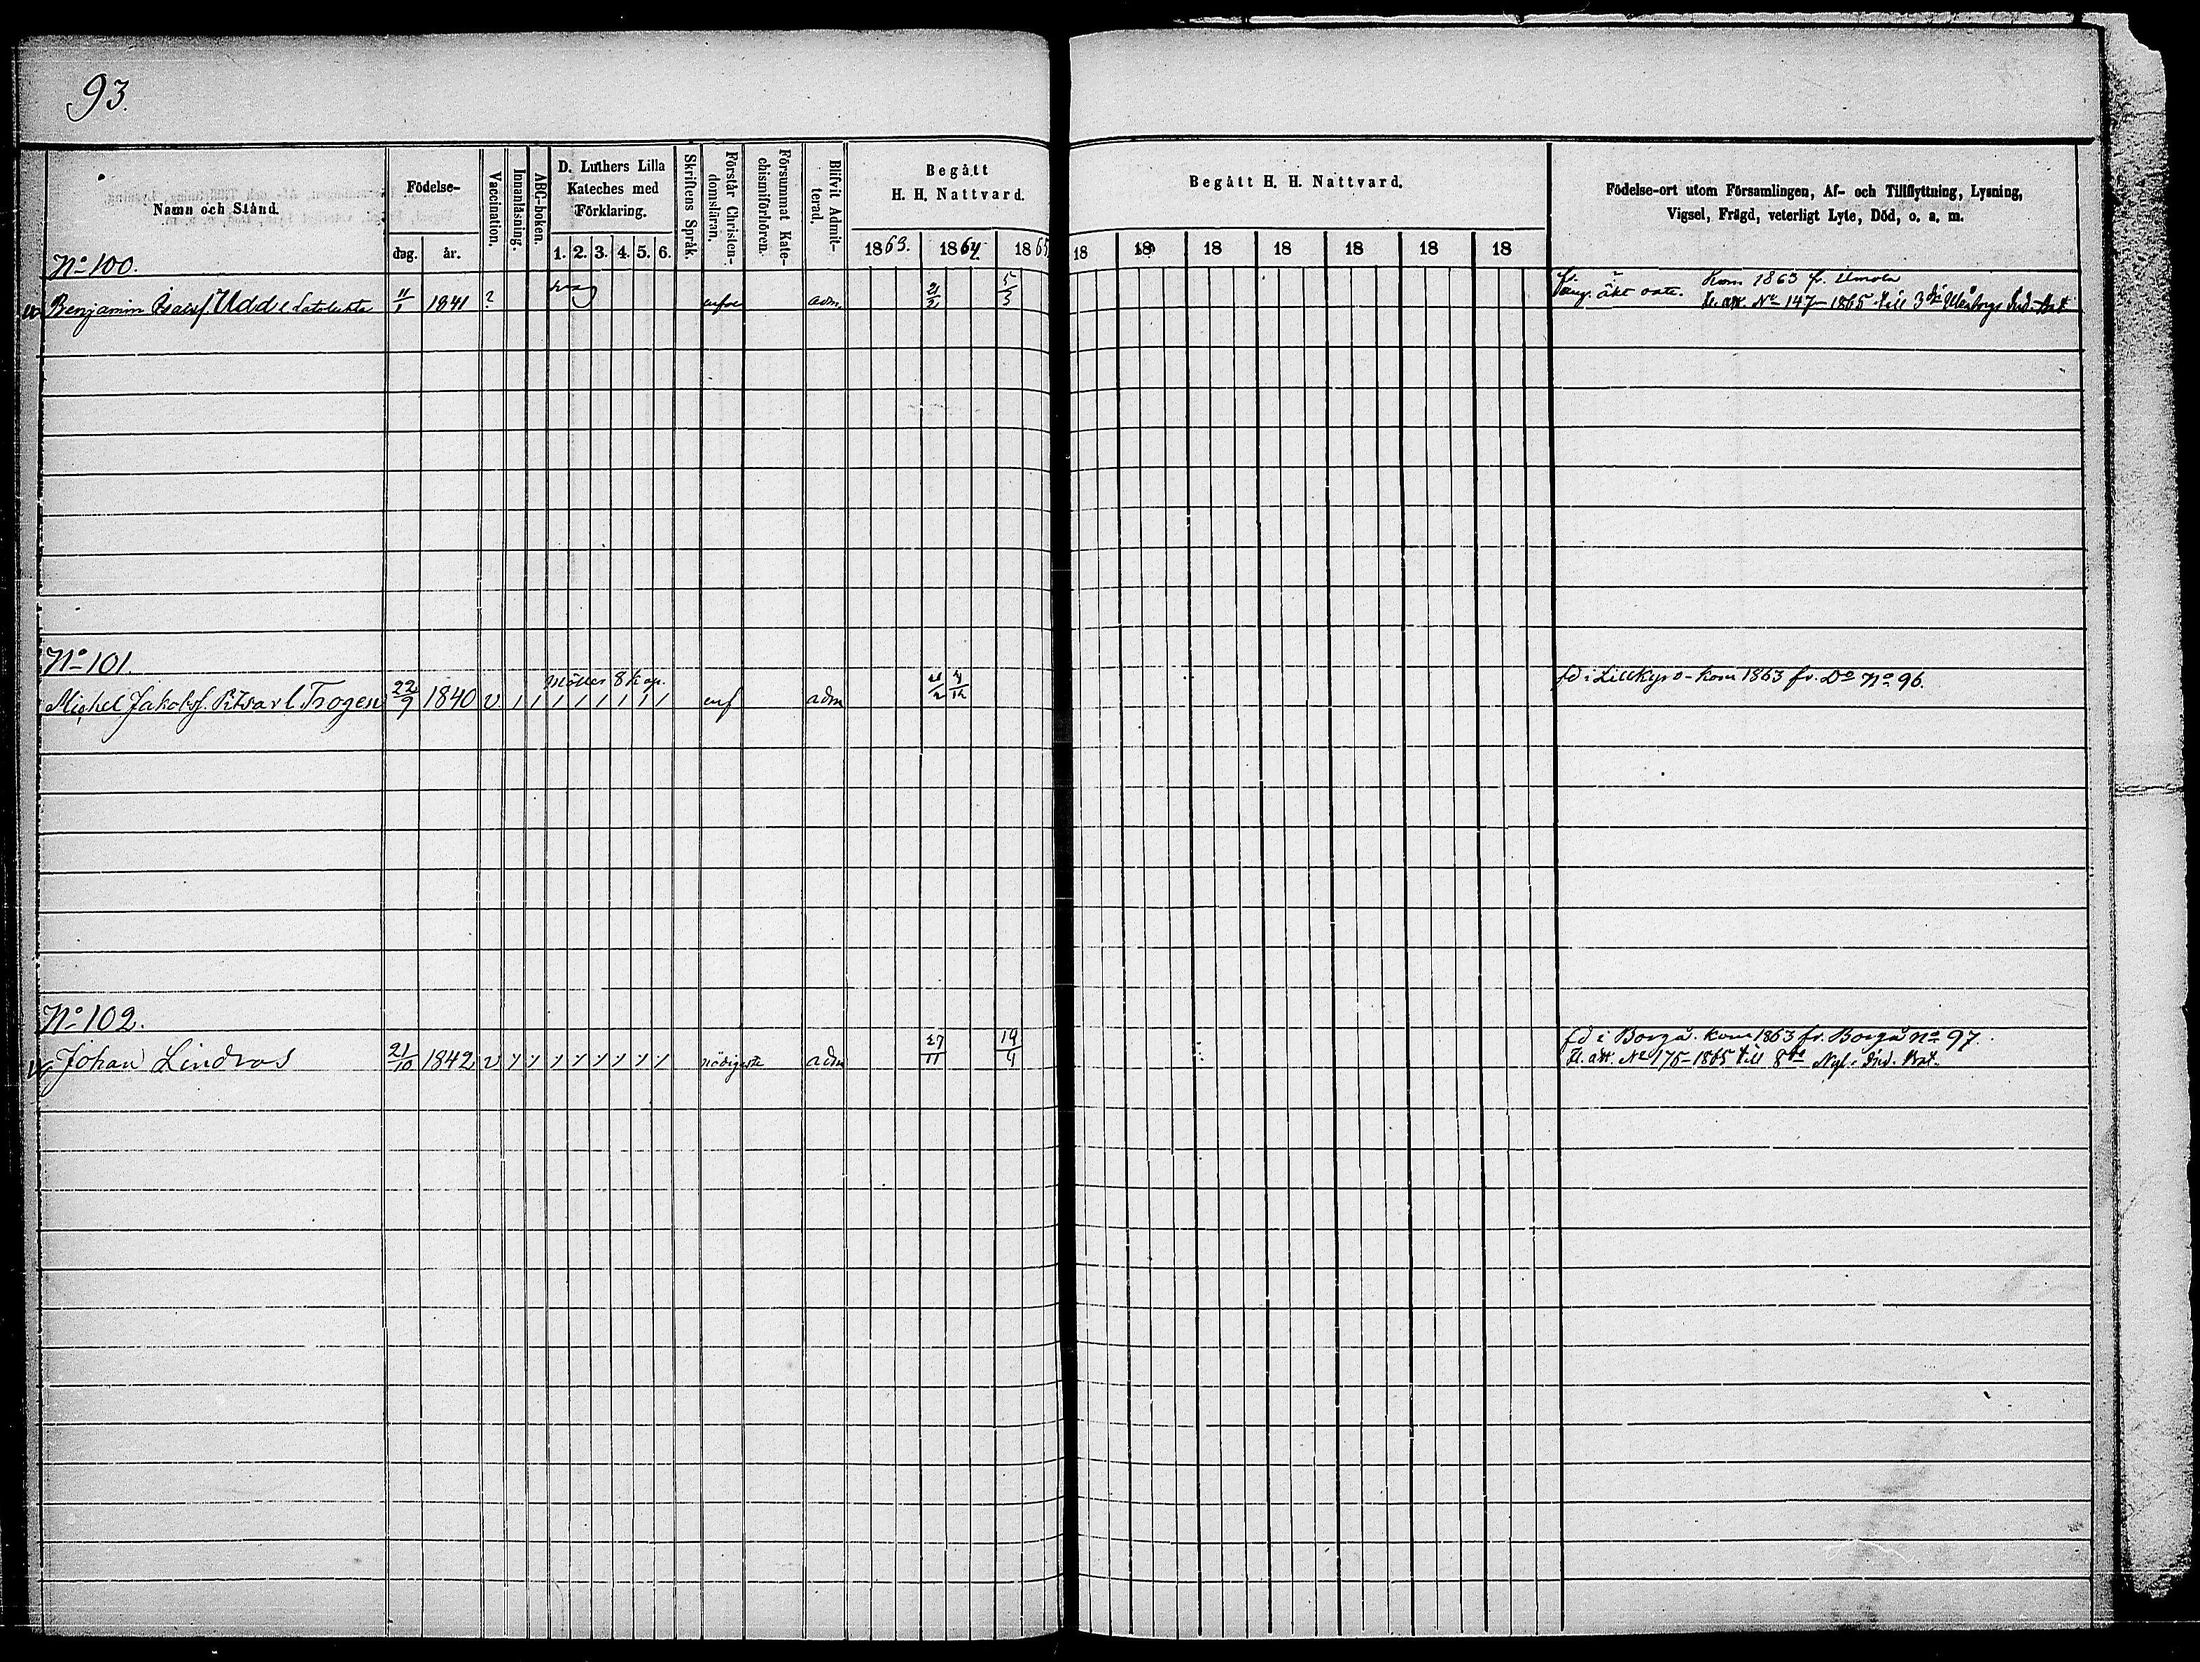 93.
Namn och Stånd.
Födelse-
dag. år.
Vaccination.
Innanläsning.
ABC-boken.
D. Luthers Lilla
Kateches med
Förklaring.
1. 2. 3. 4. 5. 6.
Skriftens Språk.
Förstår Christen-
domsläran.
Försummat Kate-
chismiförhören.
Blifvit Admit-
terad.
Begått
H. H. Nattvard.
1863. 1864. 1865
Begått H. H. Nattvard.
18 18 18 18 18 18 18
Födelse-ort utom Församlingen, Af- och Tillflyttning, Lysning,
Vigsel, Frägd, veterligt Lyte, Död, o. a. m.
No 100.
Kom 1863 fr.
Benjamin Isaksf. Udd 11/1 1841 ? adm 21/2 5/3
fl. att. No 147-1865 till 3dje Uleåborgs Ind. Bat
No 101.
8 kap.
Michel Jakobsf. l. Trogen 22/9 1840 v / / / / / / / / enf adm 21/2 4/12
fd i Lillkyro - kom 1863 fr. Do No 96.
No 102.
Johan Lindros 21/10 1842 v / / / / / / / / nödigaste adm 27/11 19/4
fd i Borgå. kom 1863 fr. Borgå No 97.
fl. att. No 175-1865 till 8de Nyl. Ind. Bat.